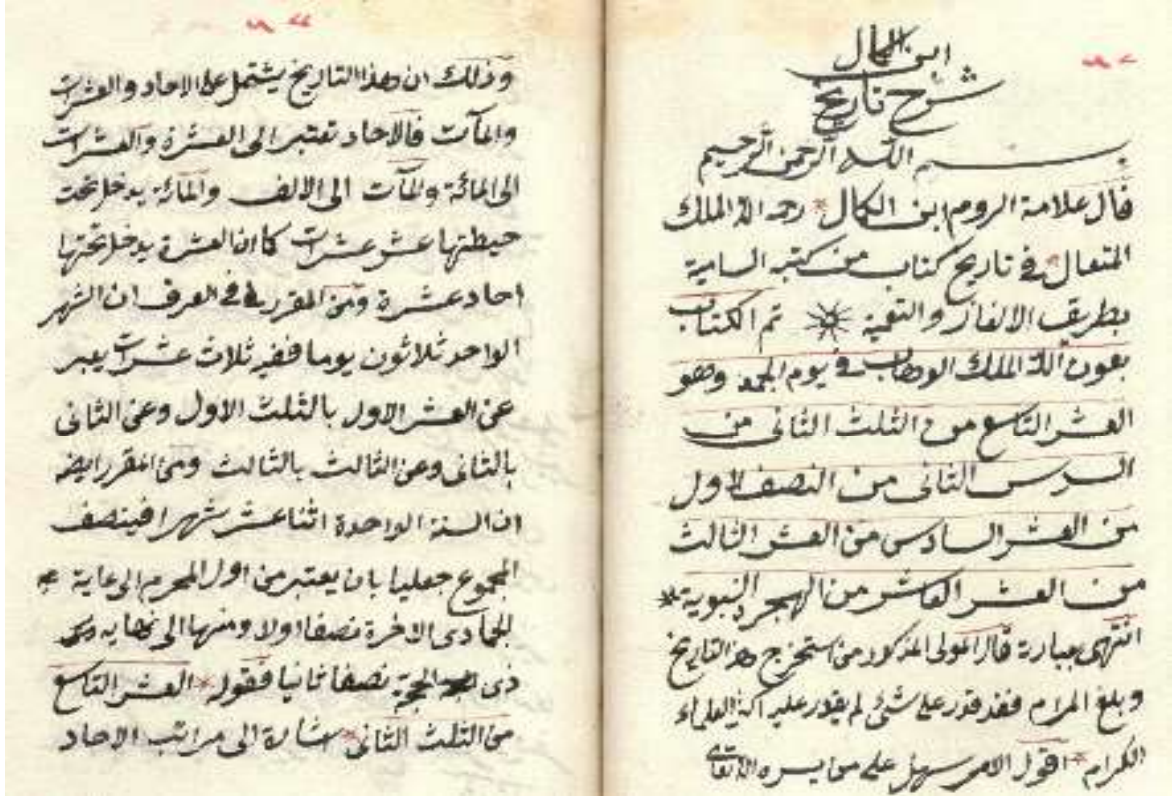 ابن الكمال
شرح تاريخ
بسم الله الرحمن الرحيم
قال علامة الروم ابن الكمال * رحمه الله الملك
المتعال * في تاريخ كتاب من كتبه السامية
بطريق الالغاز والتعمية تم الكتاب
بعون الله الملك الوهاب في يوم الجمعة وهو
العشر التاسع من الثلث الثاني من
السدس الثاني من النصف الاول
من العشر السادس من العشر الثالث
من العشر العاشر من الهجرة النبوية *
انتهى بعبارته قال المولى المذكور من استخرج هذا التاريخ
وبلغ المرام فقد قدر على شئ لم يقدر عليه اكثر العلماء
الكرام * اقول الامر سهل على من يسره الله تعالى
وذلك ان هذا التاريخ يشتمل على الاحاد والعشرات
والمآت فالاحاد تعتبر الى العشرة والعشرات
الى المائة والمآت الى الالف والمائة يدخل تحت
حيطتها عشر عشرات كما ان العشرة يدخل تحتها
احاد عشرة ومن المقرر في العرف ان الشهر
الواحد ثلاثون يوما ففيه ثلاث عشرات يعبر
عن العشر الاول بالثلث الاول وعن الثاني
بالثاني وعن الثالث بالثالث ومن المقرر ايضا
ان السنة الواحدة اثنا عشر شهرا فينصف
المجموع جعليا بان يعتبر من اول المحرم الى غاية
الجمادى الاخرة نصفا اولا ومنها الى نهاية
ذى الحجة نصفا ثانيا فقوله * العشر التاسع
من الثلث الثاني * اشارة الى مراتب الاحاد